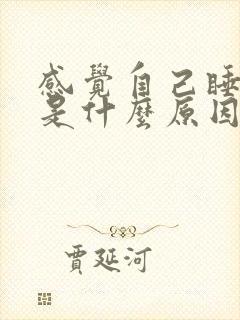 感覺自己睡
是什麼原因
賈延河